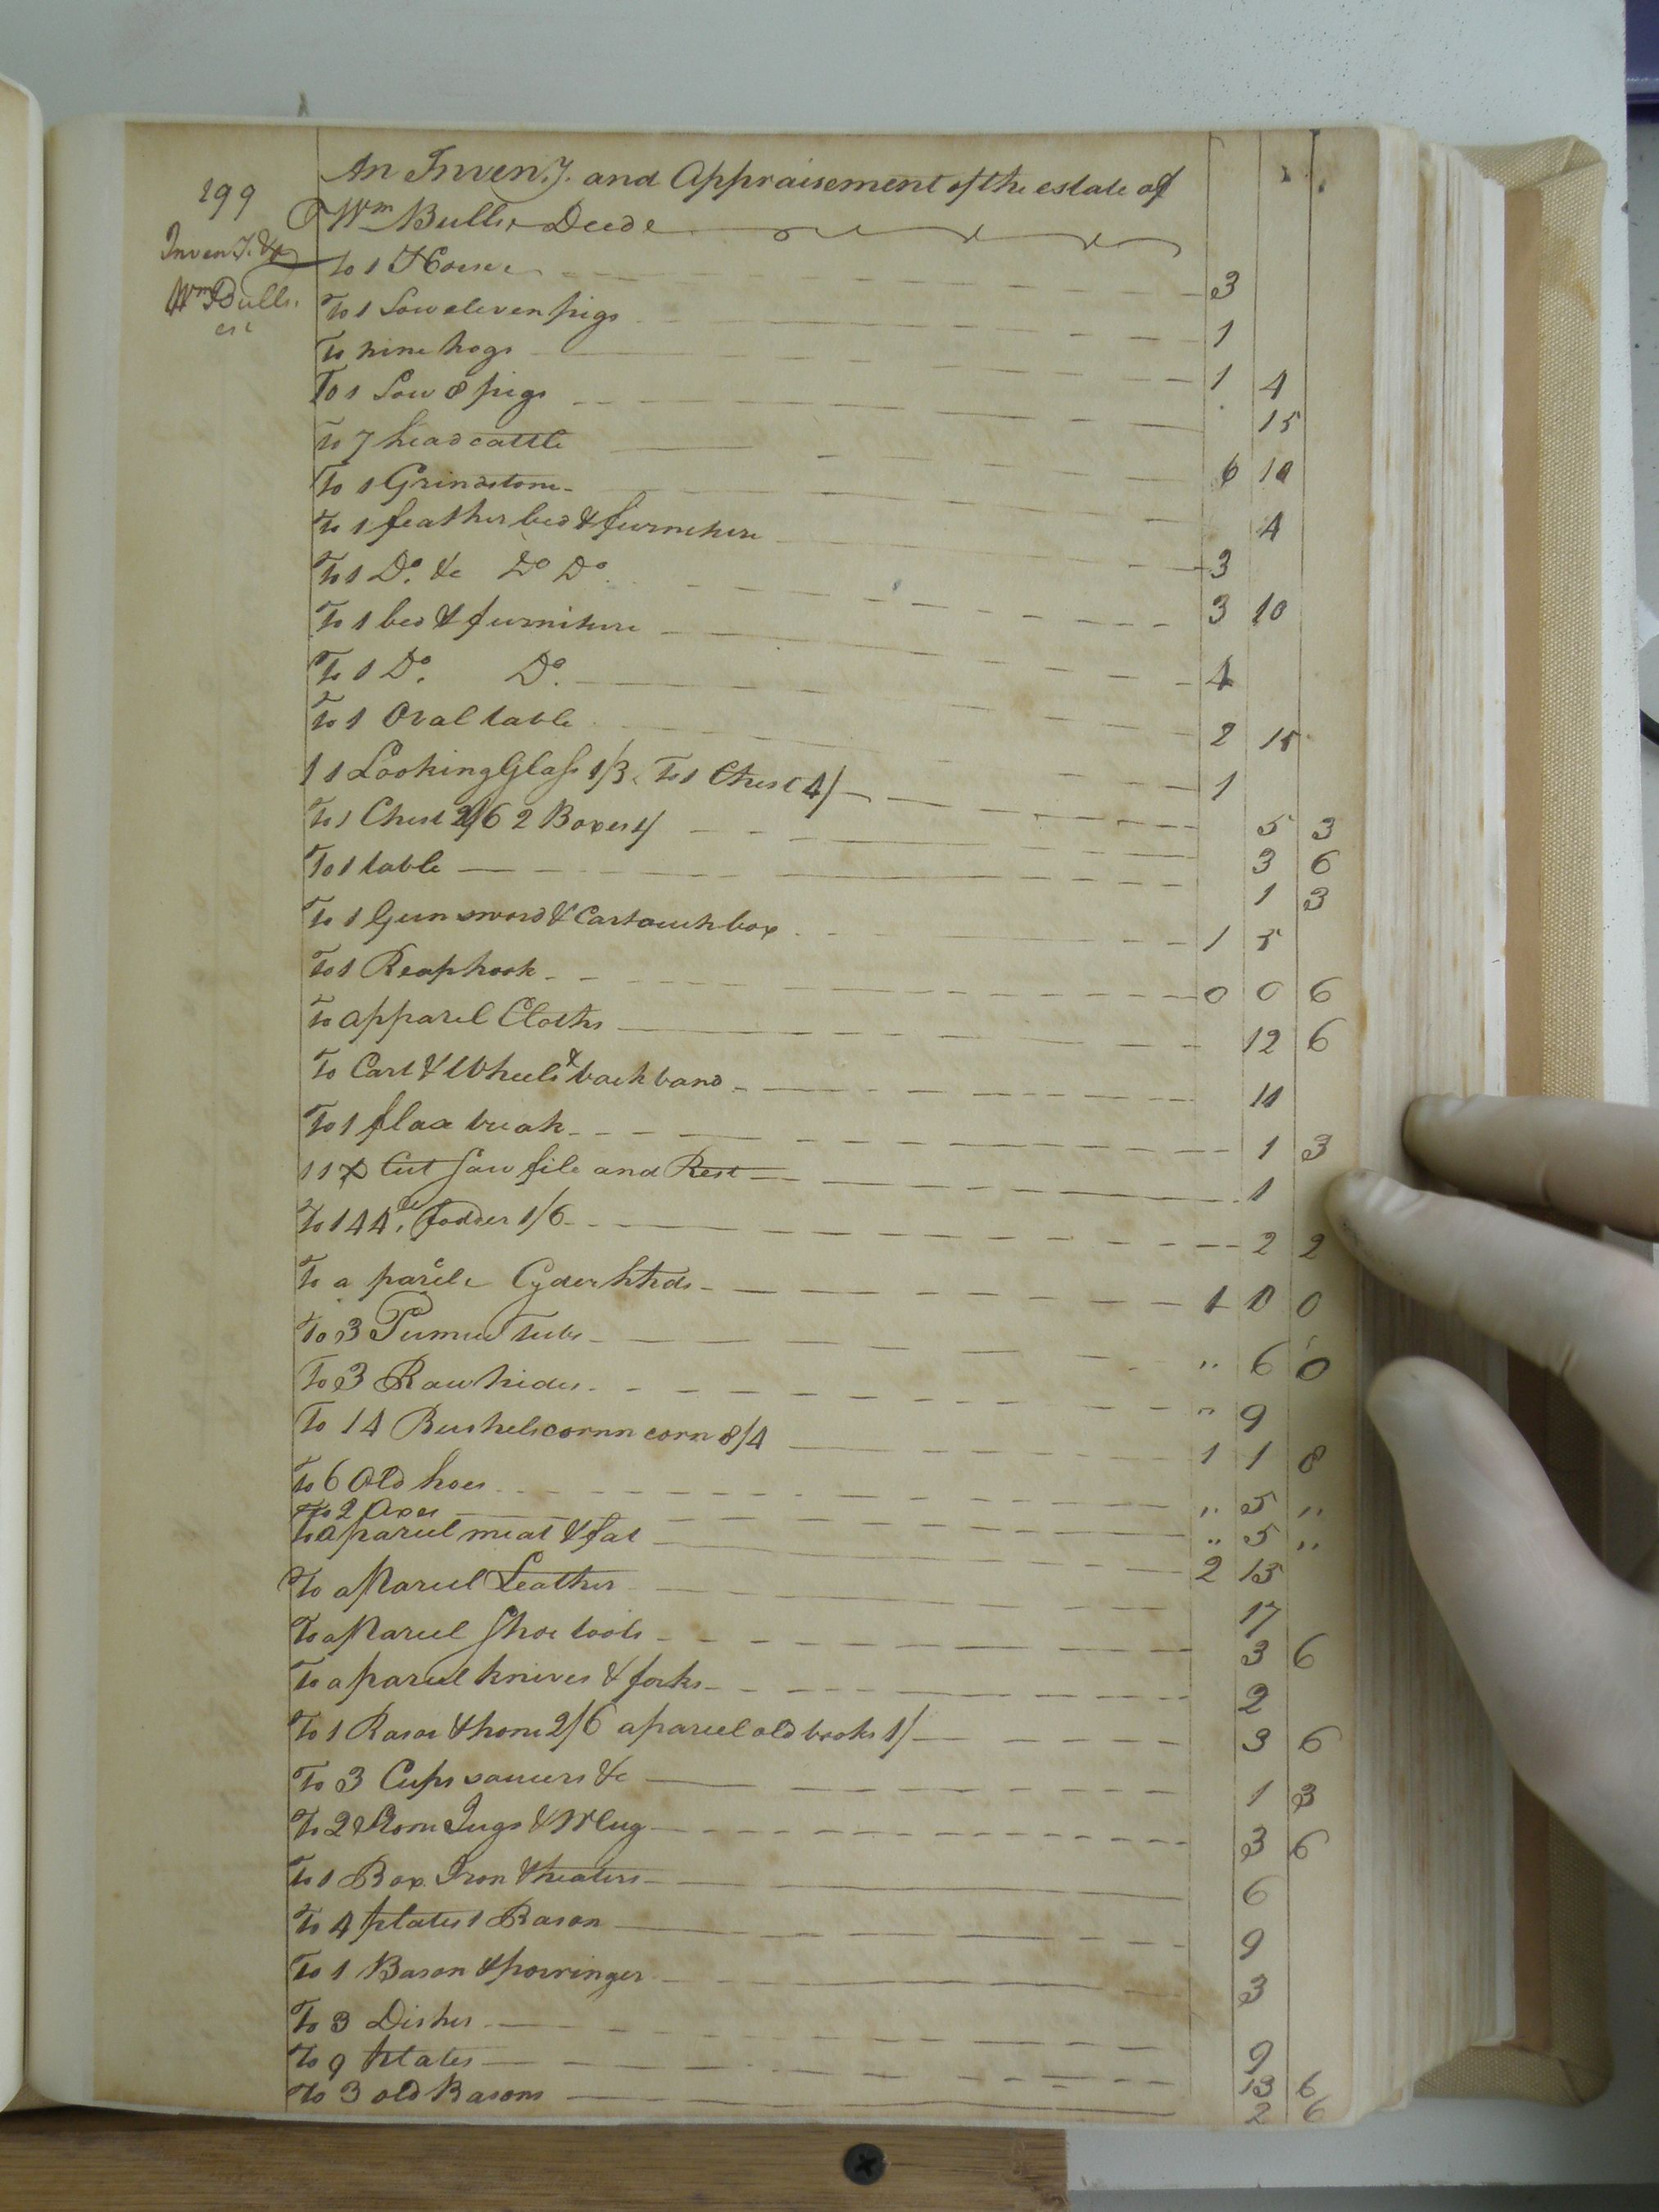 299
Inven.y. &c
Wm Bulls.
est
An Inven.y. and Appraisement of the estate of
Wm Bulls Decd
To 1 Horse 3
To 1 Sow eleven pigs 1
To nine hogs 1 4
To 1 Sow 8 pigs 15
To 7 head cattle 6 10
To 1 Grindstone 4
To 1 feather bed & furniture 3
To 1 Do. &c Do Do 3 10
To 1 bed & furniture 4
To 1 Do. Do. 2 15
To 1 Oval table 1
1 1 Looking Glass 1/3. To 1 Chest 4/ 5 3
To 1 Chest 2/6 2 Boxes 1/ 3 6
To 1 table 1 3
To 1 Gun sword & Cartouch box 1 5
To 1 Reaphook 0 0 6
To apparel Cloths 12 6
To Cart & Wheels & back band 10
To 1 flax break 1 3
1 1 X Cut Saw file and Rest 1
To 144 lb. Fodder 1/6 2 2
To a parcle Cyder hhds 1 10 0
To 3 Pumie tubs " 6 0
To 3 Raw hides " 9
To 14 Bushels cornn corn 8/4 1 1 8
To 6 Old hoes " 5 "
To 2 Axes " 5 "
To a parcel meat & fat 2 15
To a Parcel Leather 17
To a Parcel Shoe tools 3 6
To a parcel knives & forks 2
To 1 Rasor & hone 2/6 a parcel old books 1/ 3 6
To 3 Cups saucers &c 1 3
To 2 Stone Jugs & Mug 3 6
To 1 Box Iron & heaters 6
To 4 plates 1 Bason 9
To 1 Bason & porringer 3
To 3 Dishes 9
To 9 Plates 13 6
To 3 old Basons 2 6